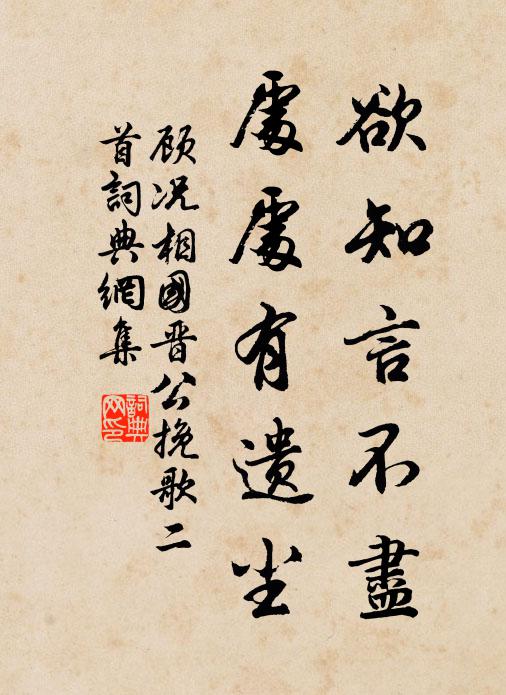 欲知言不盡
處處有遺尘
顾况相國晋公挽歌二
首詞典網集
詞典
网印